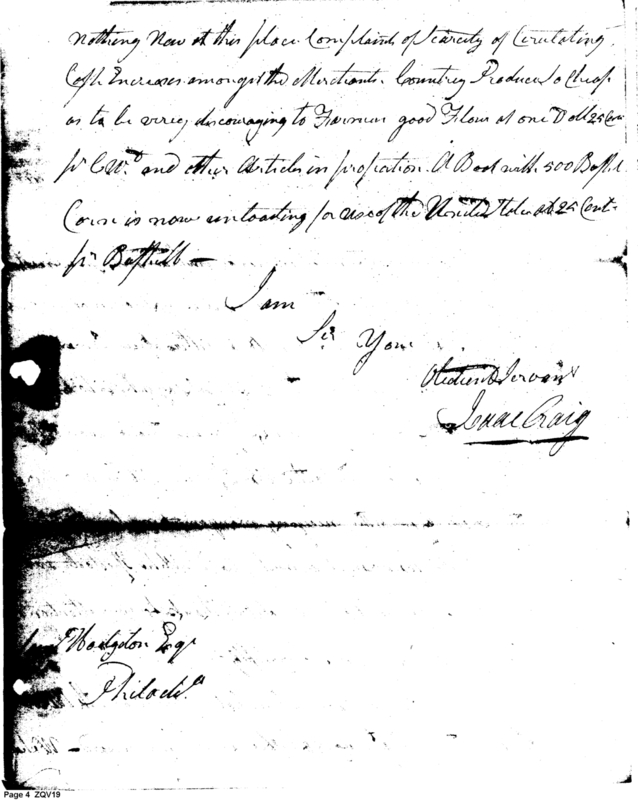 nothing New at this place Complaints of Scarcity of Circulating
Cash Increases amongst the Merchants Country Produce so Cheap
as to be verey discouraging to Farmers good Flour at one Doll 25 Cen
pr CWt and other Articles in proportion. A Boat with 500 Bushl
Corn is now unloading for use of the at 25 Cent
pr Bushell —
I am
Sir Your
Obedient Servant
Isaac Craig
Hodgdon Esqr
Philada
Page 4 ZQV19